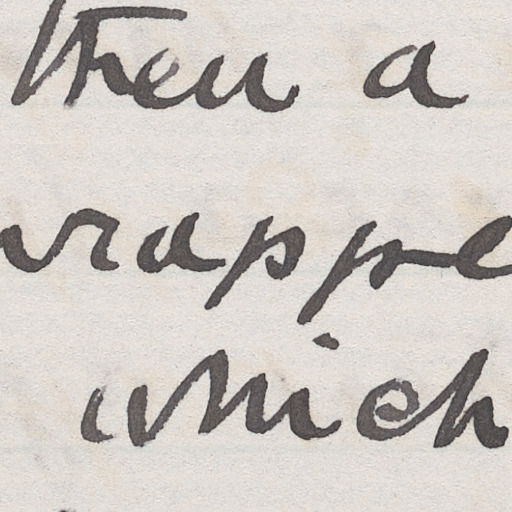 then a
wrappe
which